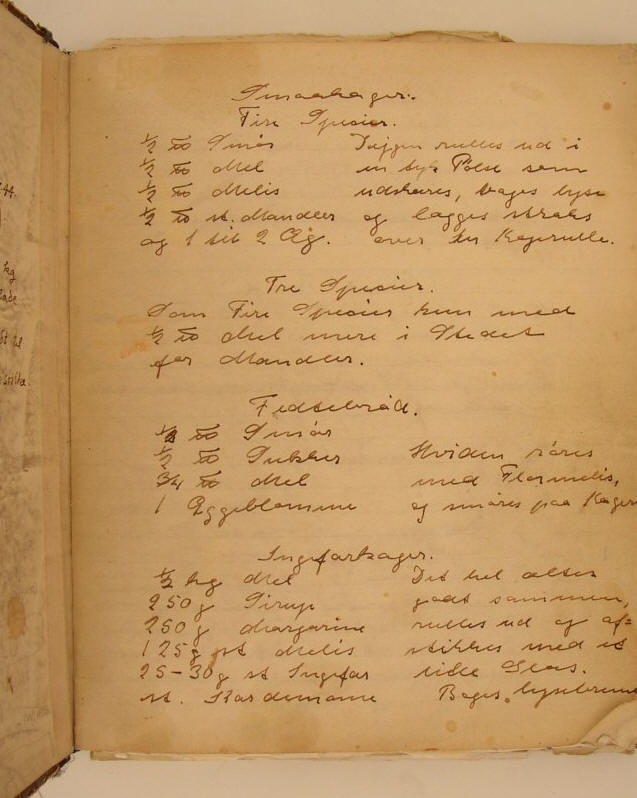 Smaakager.
Fire Spesier.
½ ℔ Smör
½ ℔ Mel
½ ℔ Melis
½ ℔ st. Mandler
og 1 til 2 Æg.
Dejgen rulles ud i
en tyk Pölse som
udskæres, bages lyse
og lægges straks
over en Kagerulle.
Tre Spesier.
Som Fire Spesier kun med
½ ℔ Mel mere i Stedet
for Mandler.
Fedtebröd.
½ ℔ Smör
½ ℔ Sukker
¾ ℔ Mel
1 Æggeblomme
Hviden röres
med Flormelis,
og smöres paa Kagen
Ingefærkager.
½ kg Mel
250 g Sirup
250 g Margarine
125 g st Melis
25-30 g st Ingefær
st. Kardemome
Det hel æltes
godt sammen,
rulles ud og af=
stikkes med et
lille Glas.
Bages lysebrune
44.
kg